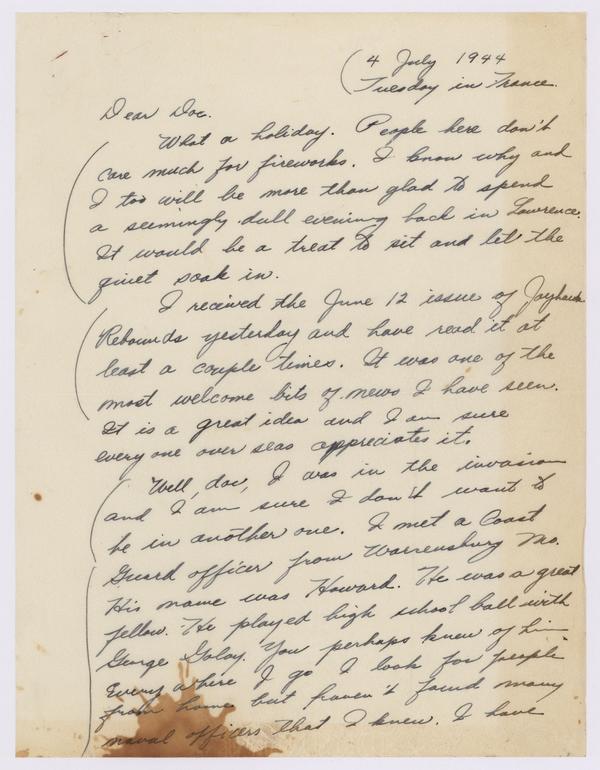 4 July 1944
Tuesday in France.
Dear Doc.
What a holiday. People here don't
care much for fireworks. I know why and
I too will be more than glad to spend
a seemingly dull evening back in Lawrence.
It would be a treat to sit and let the
quiet soak in.
I received the June 12 issue of Jayhawk
Rebounds yesterday and have read it at
least a couple times. It was one of the
most welcome bits of news I have seen.
It is a great idea and I am sure
every one over seas appreciates it.
Well, doc, I was in the invasion
and I am sure I don't want to
be in another one. I met a Coast
Guard officer from Warrensburg Mo.
His name was Howard. He was a great
fellow. He played high school ball with
George Golay. You perhaps knew of him
Every where I go I look for people
from home but haven't found many
naval officers that I knew. I have